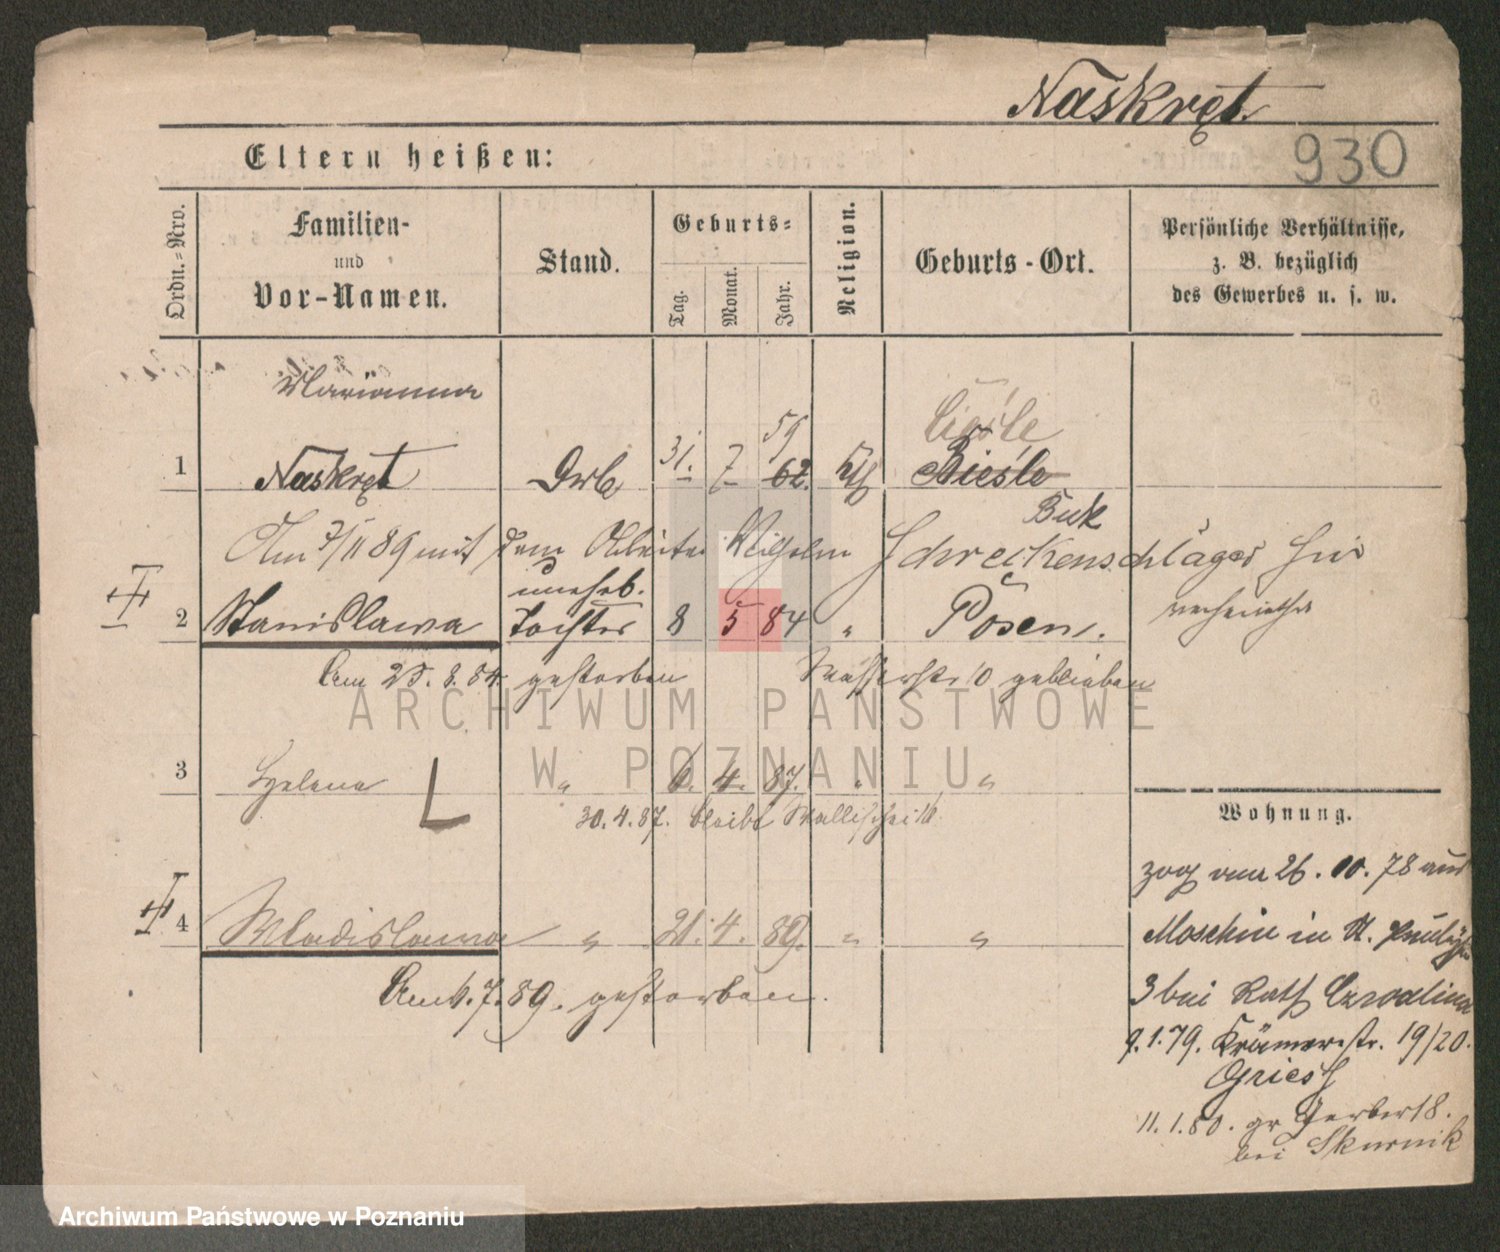 Naskręt.
930
Eltern heißen:
Ordn.=Nro.
Familien-
und
Vor-Namen.
Stand.
Geburts=
Tag.
Monat.
Jahr.
Religion.
Geburts-Ort.
Persönliche Verhältnisse,
z. B. bezüglich
des Gewerbes u. s. w.
Marianna
59
1 Naskręt 31. 7 62. Kth Bieśle
Buk
Am 7/11 89 mit dem Arbeiter Wilhelm Schreckenschläger hier
verheirathet
uneheb.
2 Stanislawa Tochter 8 5 84 " Posen.
Am 25. 8. 84. gestorben Wasserstr 10 geblieben
3 Helena " 6. 4. 87. " "
30. 4. 87. bleibt Wallischei
4 Wladislawa " 21. 4. 89. " "
Am 6. 7. 89. gestorben.
Wohnung.
zog am 26. 10. 78 aus
Moschin in St.
3 bei Rath
9. 1. 79. Krämerstr. 19/20.
Griesch
11. 1. 80. gr Gerberst 8.
bei Skurnik
ARCHIWUM PAŃSTWOWE
W POZNANIU
Archiwum Państwowe w Poznaniu